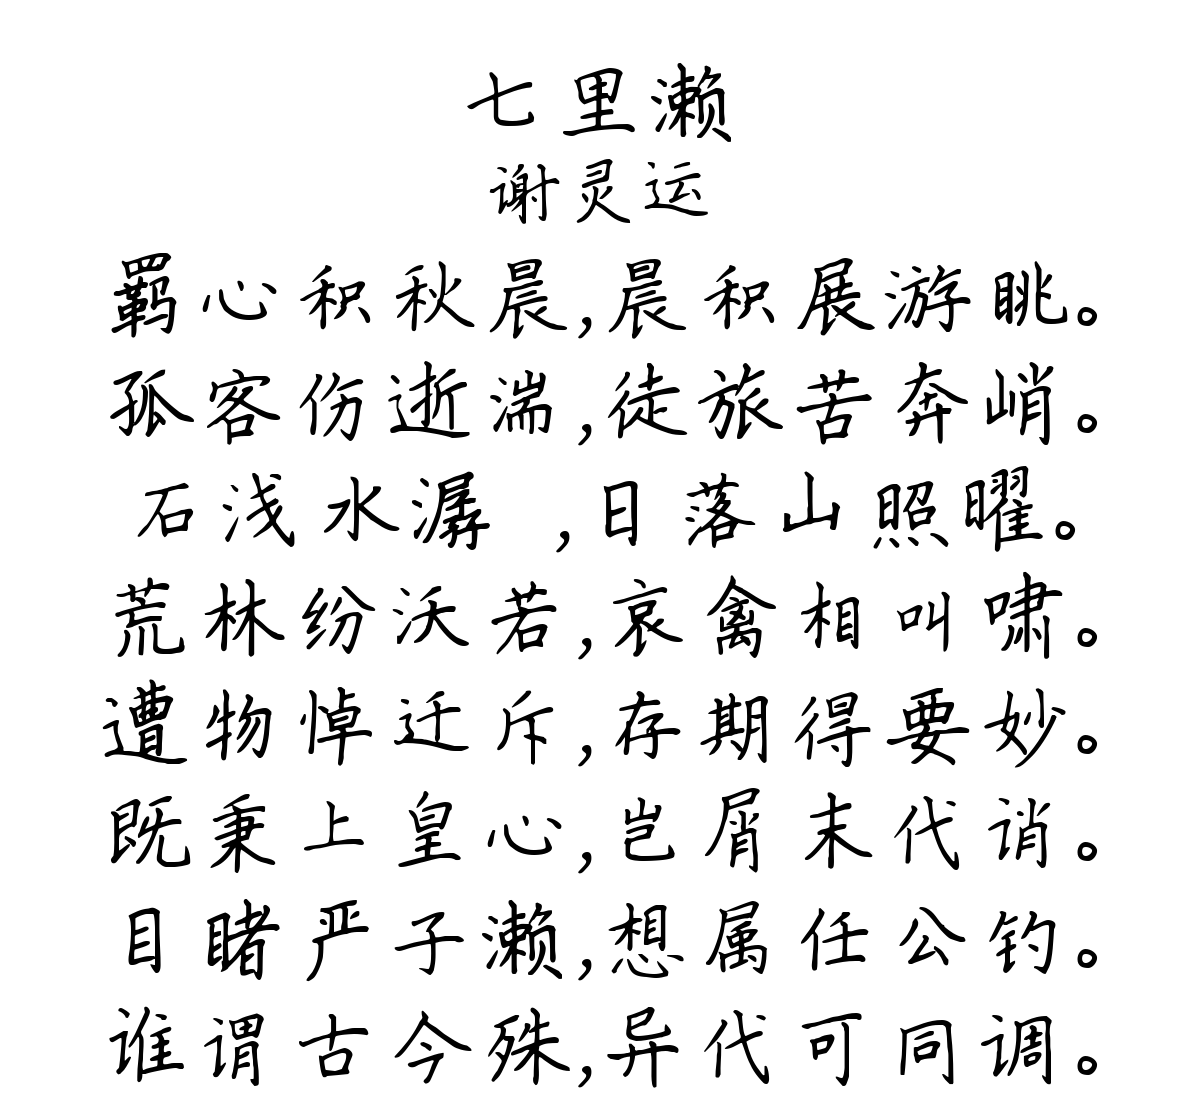 七里濑
谢灵运
羁心积秋晨,晨积展游眺。
孤客伤逝湍,徒旅苦奔峭。
石浅水潺 ,日落山照曜。
荒林纷沃若,哀禽相叫啸。
遭物悼迁斥,存期得要妙。
既秉上皇心,岂屑末代诮。
目睹严子濑,想属任公钓。
谁谓古今殊,异代可同调。